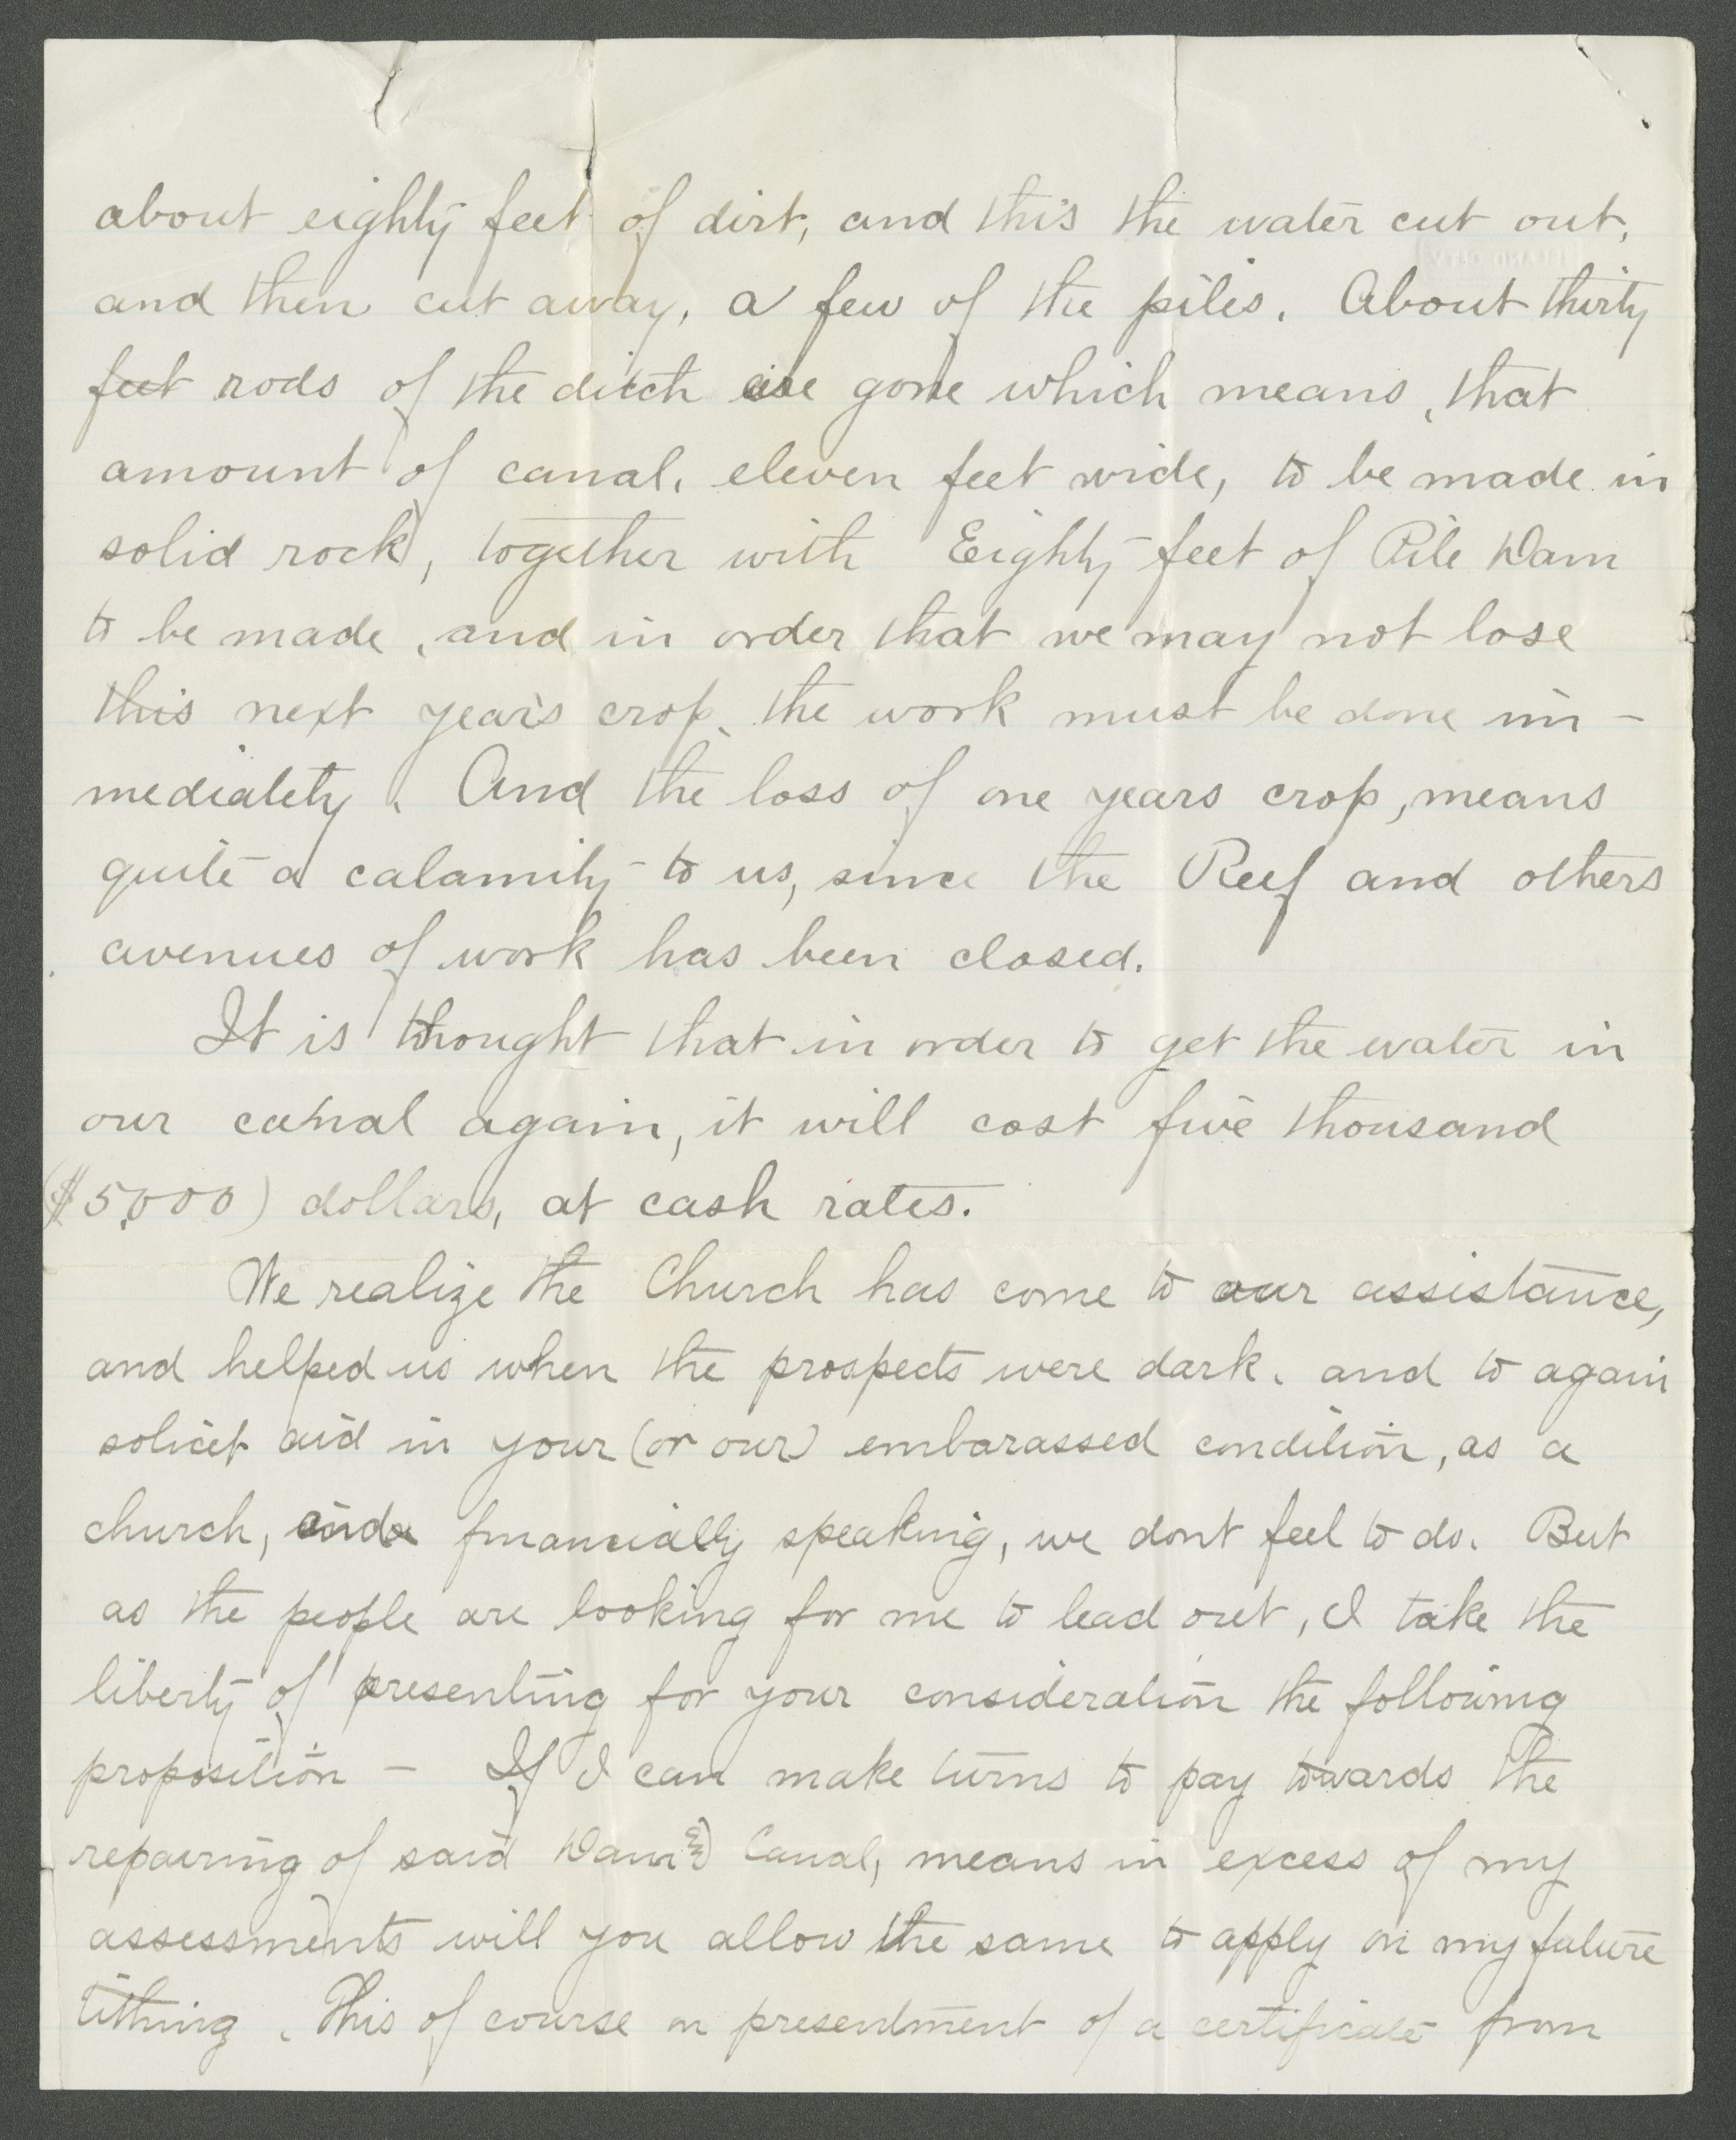 about eighty feet of dirt, and this the water cut out,
and then cut away, a few of the piles. About thirty
feet rods of the ditch are gone which means, that
amount of canal, eleven feet wide, to be made in
solid rock, together with Eighty feet of Pile Dam
to be made, and in order that we may not lose
this next year's crop, the work must be done im-
mediately. And the loss of one years crop, means
quite a calamity to us, since the Reef and others
avenues of work has been closed.
It is thought that in order to get the water in
our canal again, it will cost five thousand
($5,000) dollars, at cash rates.
We realize the Church has come to our assistance,
and helped us when the prospects were dark. and to again
solicit aid in your (or our) embarassed condition, as a
church, financially speaking, we dont feel to do. But
as the people are looking for me to lead out, I take the
liberty of presenting for your consideration the following
proposition - If I can make turns to pay towards the
repairing of said Dam & Canal, means in excess of my
assessments will you allow the same to apply on my future
tithing. This of course on presentment of a certificate from